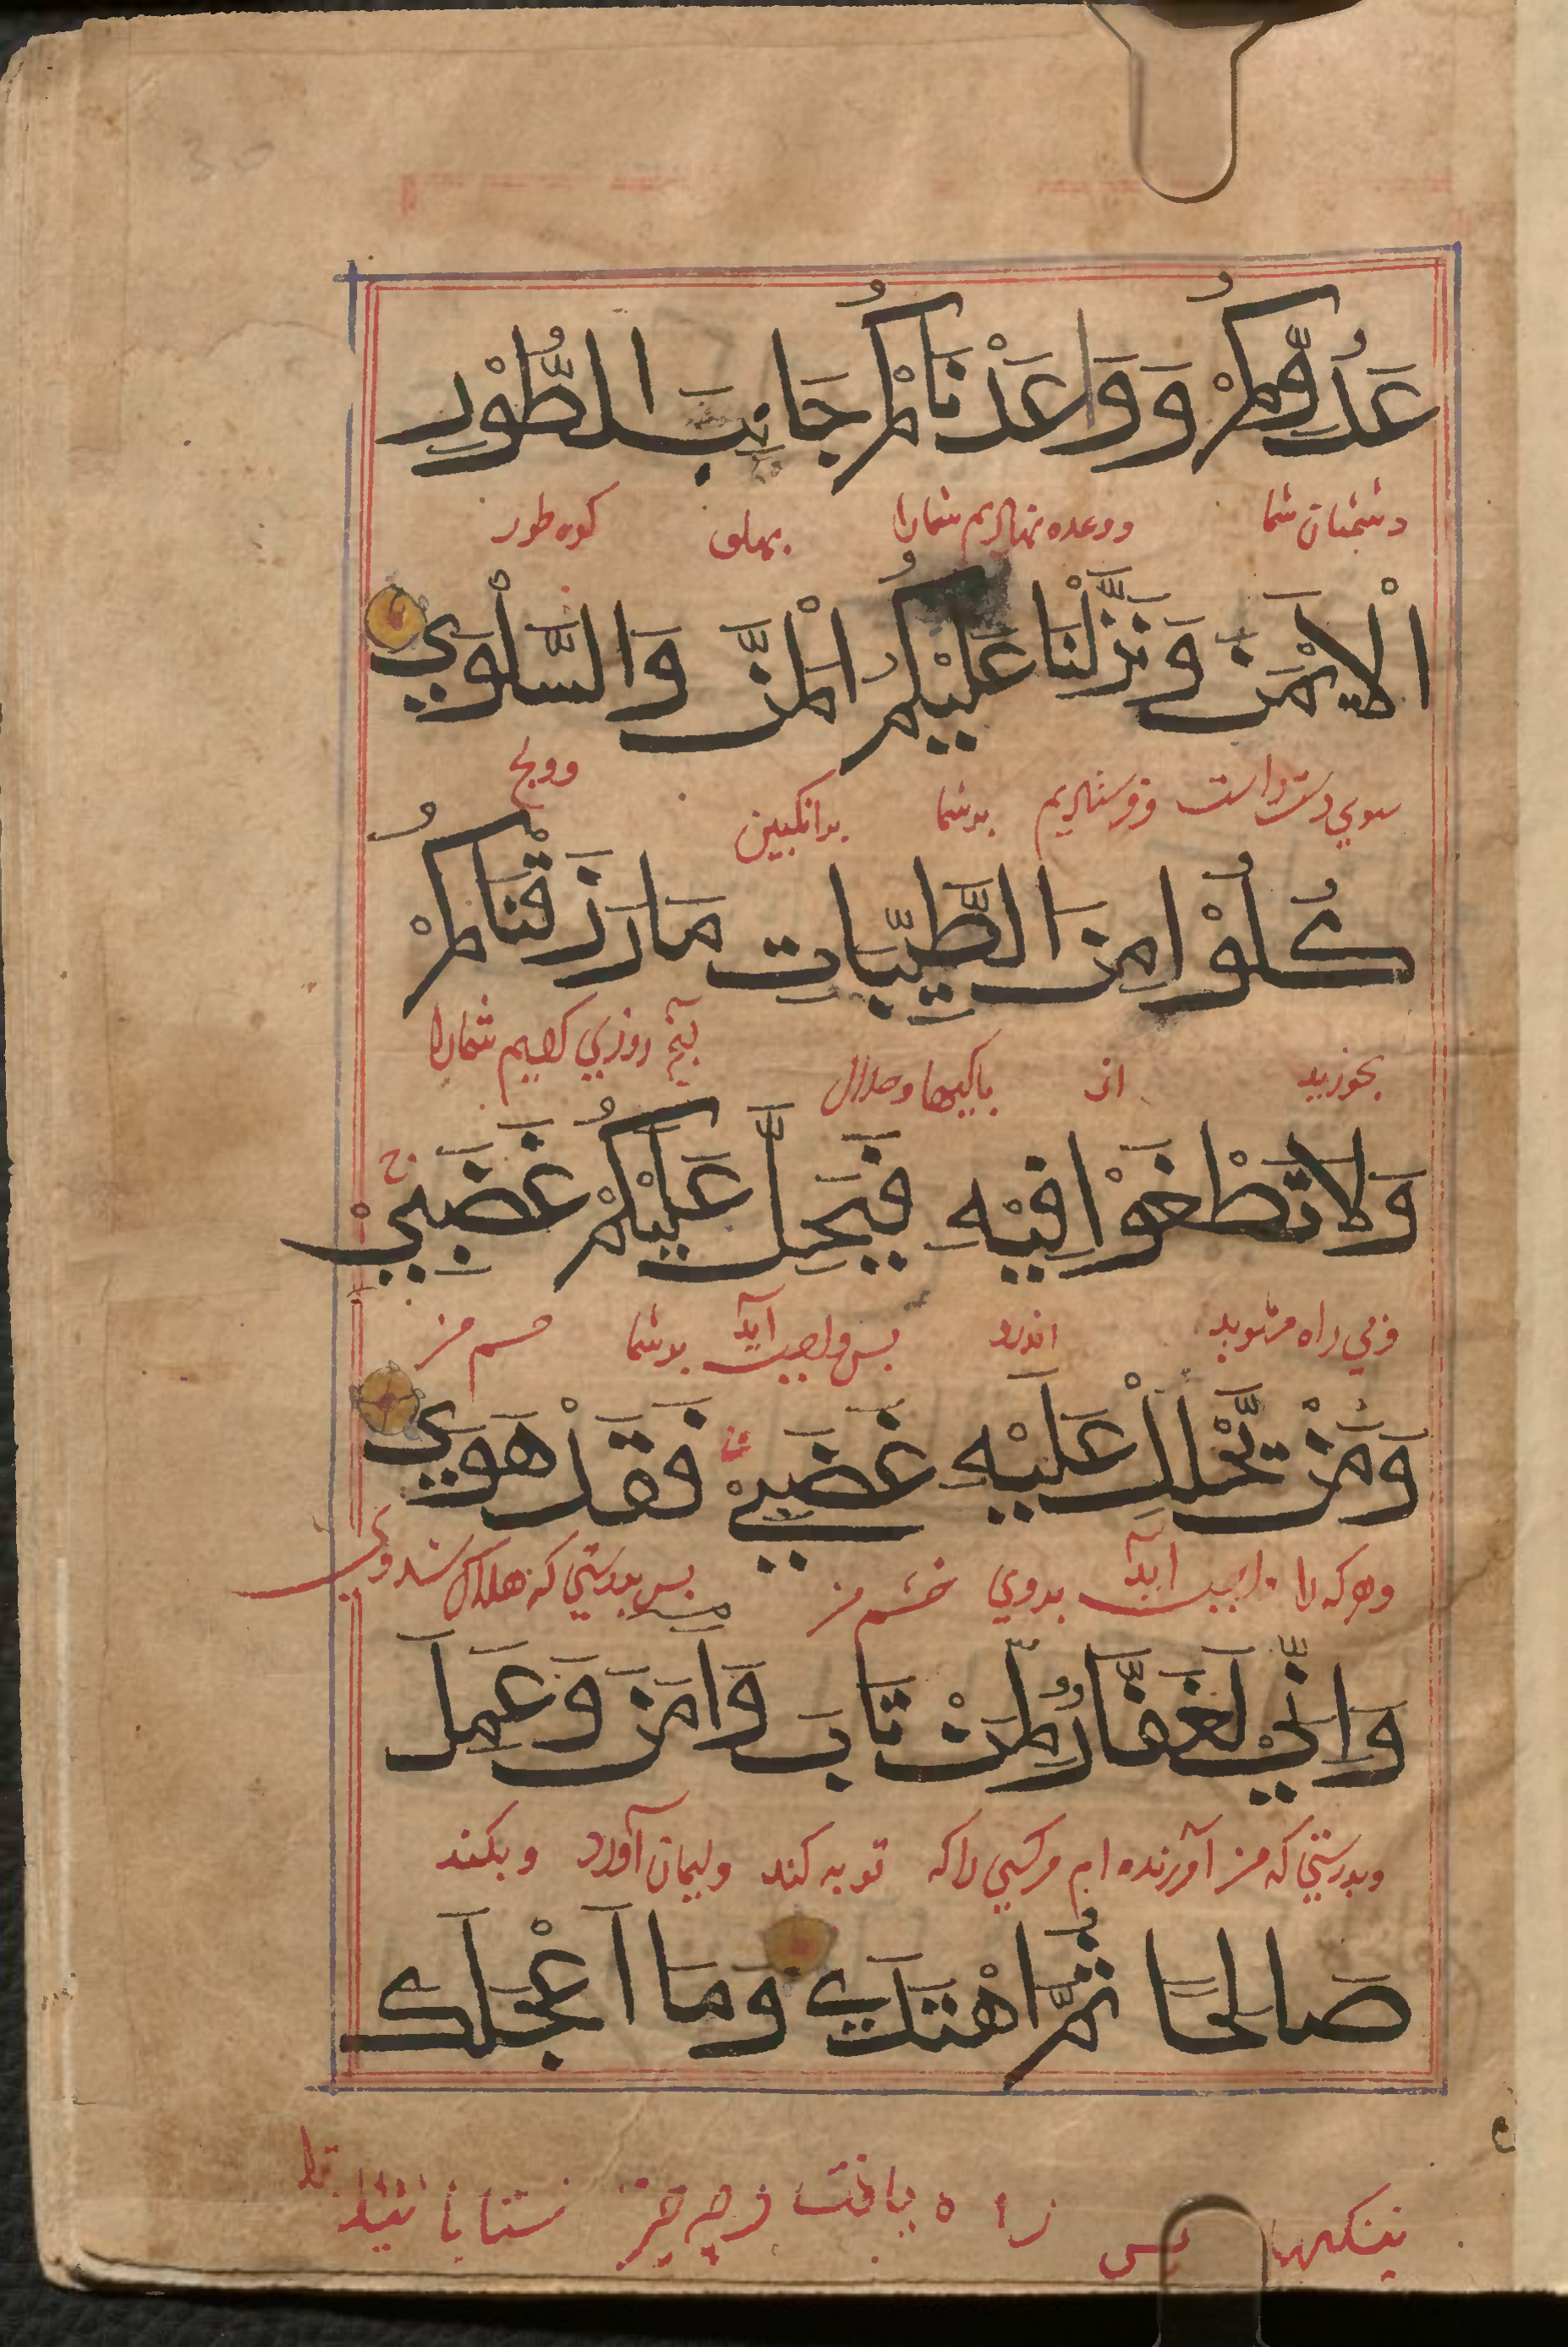 عَدُوِّكُمْ وَوَاعَدْنَاكُمْ جَانِبَ الطُّوْرِ
دشمنان شما ووعده نهادیم شمارا بهلوی کوه طور
الْاَيْمَنَ وَنَزَّلْنَا عَلَيْكُمُ الْمَنَّ وَالسَّلْوَي
سوي دست راست وفرستادیم برشما برانکبین وولج
كُلُوْا مِنَ الطَّيِّبَاتِ مَا رَزَقْنَاكُمْ
بخورید از باکیها وحلال آنچ روزي کردیم شمارا
وَلَا تَطْغَوْا فِيْهِ فَيَحِلَّ عَلَيْكُمْ غَضَبِيْ ج
وبي راه مشوید اندرو بس واجب آید برشما خشم من
وَمَنْ يَّحْلِلْ عَلَيْهِ غَضَبِيْ فَقَدْ هَوَي
وهرکه را واجب آید بروي خشم من بس بدرستي که هلاک شد وي
وَاِنِّيْ لَغَفَّارٌ لِّمَنْ تَابَ وَاٰمَنَ وَعَمِلَ
وبدرستي که من آمرزنده ام مرکسي راکه توبه کند وایمان آورد وبکند
صَالِحًا ثُمَّ اهْتَدَي وَمَا اَعْجَلَكَ
نیکیها بس راه یافت وچه چیز شتابانید ترا